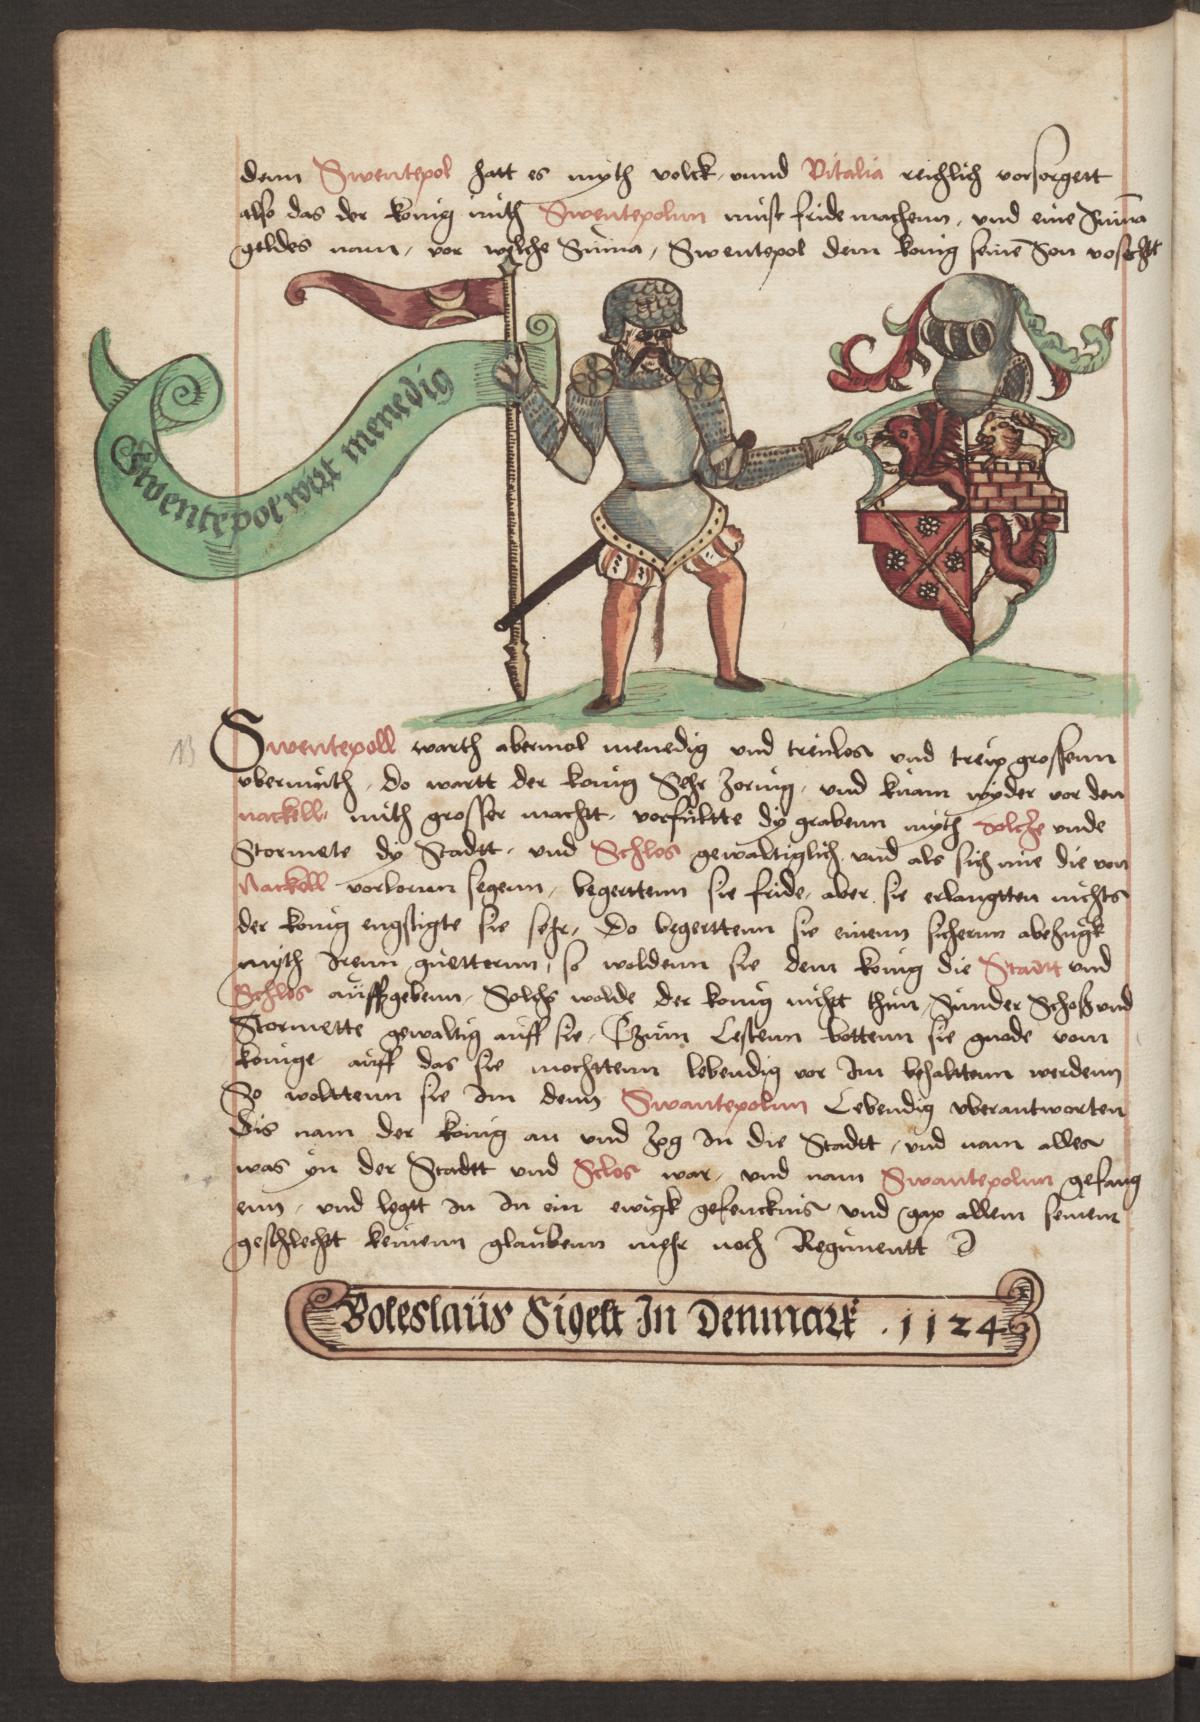 denn Swentepol hatt es myth volck vnnd Vitalia reichlich vorsorgett
also das der konig mith Swentepolnn must fride machenn, vnd eine Suma
geldes nam, vor welche Suma, Swentepol dem konig seinē Son vorsetzt
Swentepol wirt menedig
13
Swentepoll warth abermol menedig vnd treulos vnd treip grossenn
vbermuth, Do wartt der konig Sehr Zornig, vnd kwam wyder vor den
nackell, mith grosser machtt, vorfultte dy grabenn myth Holcze vnde
Stormete dy Stadtt, vnd Schlos gewaltiglich vnd als sich nue die von
Nackell vorlornn segenn, begerttenn sie fride, aber sie erlangtten nichts
der konig engstigte sie sehr, Do begerttenn sie einenn sichernn abeZugk
myth Irenn guetternn, so woldenn sie dem konig die Stadtt vnd
Schlos auffgebenn, Solchs wolde der konig nicht thun, Sunder Schoß vnd
Stormette gewaltig auff sie, Czum Lestenn bottenn sie gnade vom
konige auff das sie mochttenn lebendig vor Im behalttenn werdenn
So wolttenn sie Im denn Swantepolnn Lebendig vberantworten
Dis nam der konig an vnd Zog In die Stadtt, vnd nam alles
was yn der Stadtt vnd Sclos war, vnd nam Swantepolnn gefang
enn, vnd legtt In In ein ewigk gefencknis vnd gap allem seinem
geschlechtt keinenn glaubenn mehr noch Regimentt
Boleslaus Sigelt In Denmark .1124